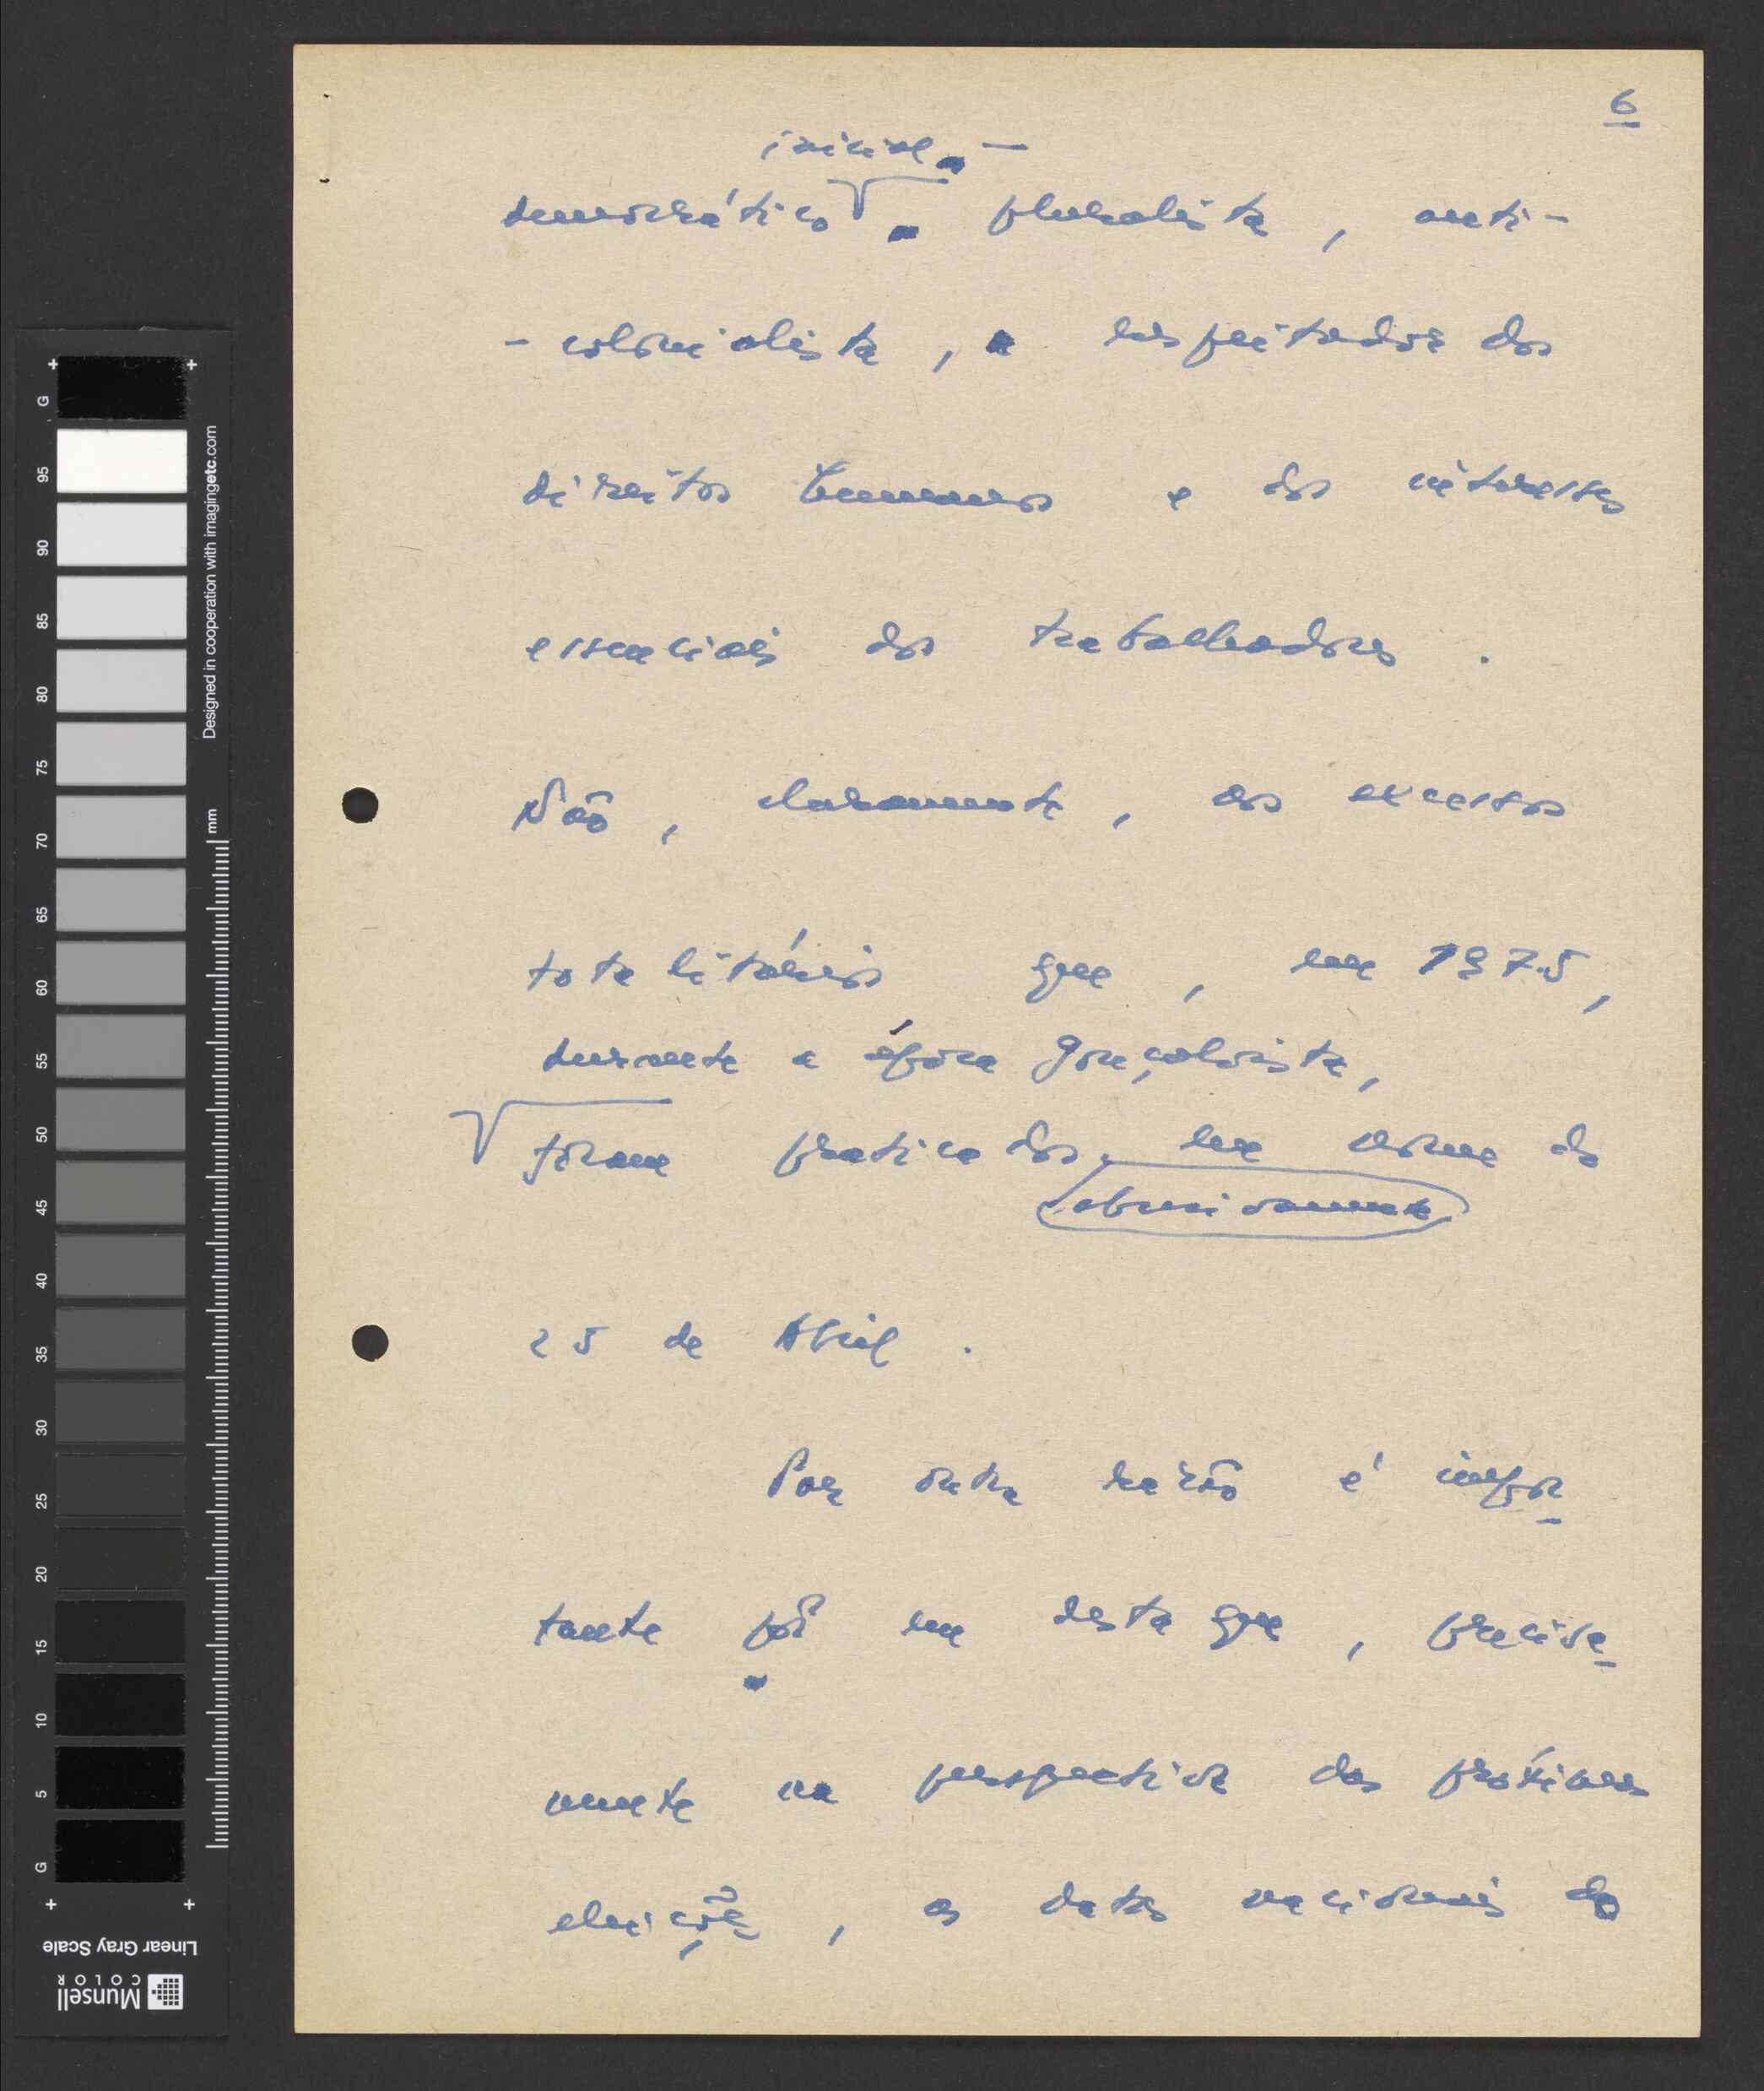 6
inicial –
democrático pluralista, anti-
- colonialista, e respeitador dos
direitos humanos e dos interesses
essenciais dos trabalhadores.
Não, claramente, os excessos
totalitários que, em 1975,
durante a época gonçalvista,
foram praticados, em nome do
abusivamente
25 de Abril.
Por outra razão é impor
tante pôr em destaque, precisa
mente na perspectiva das próximas
eleições, as datas nacionais do
G
95
90
85
80
75
70
65
60
55
50
45
40
35
30
25
20
15
10
5
G
mm
Designed in cooperation with imagingetc.com
Linear Gray Scale
Munsell
COLOR